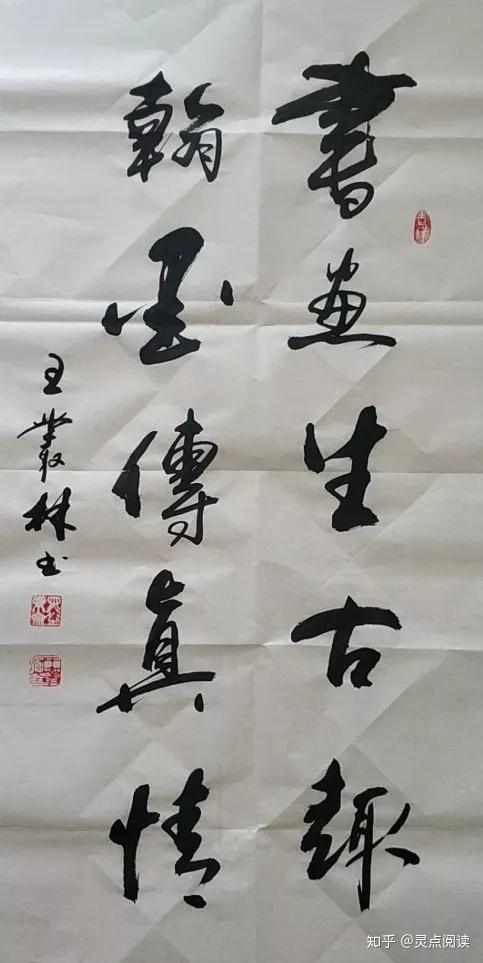 書畫生古趣
翰墨傳真情
王叢林书
知乎 @灵点阅读